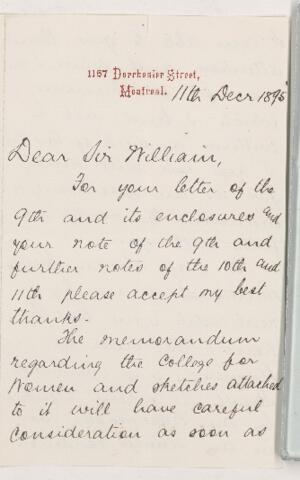 1157 Dorchester Street,
Montreal. 11th Decr 1895
Dear Sir William,
For your letter of the
9th and its enclosures and
your note of the 9th and
further notes of the 10th and
11th please accept my best
thanks-
The memorandum
regarding the College for
Women and sketches attached
to it will have careful
consideration as soon as